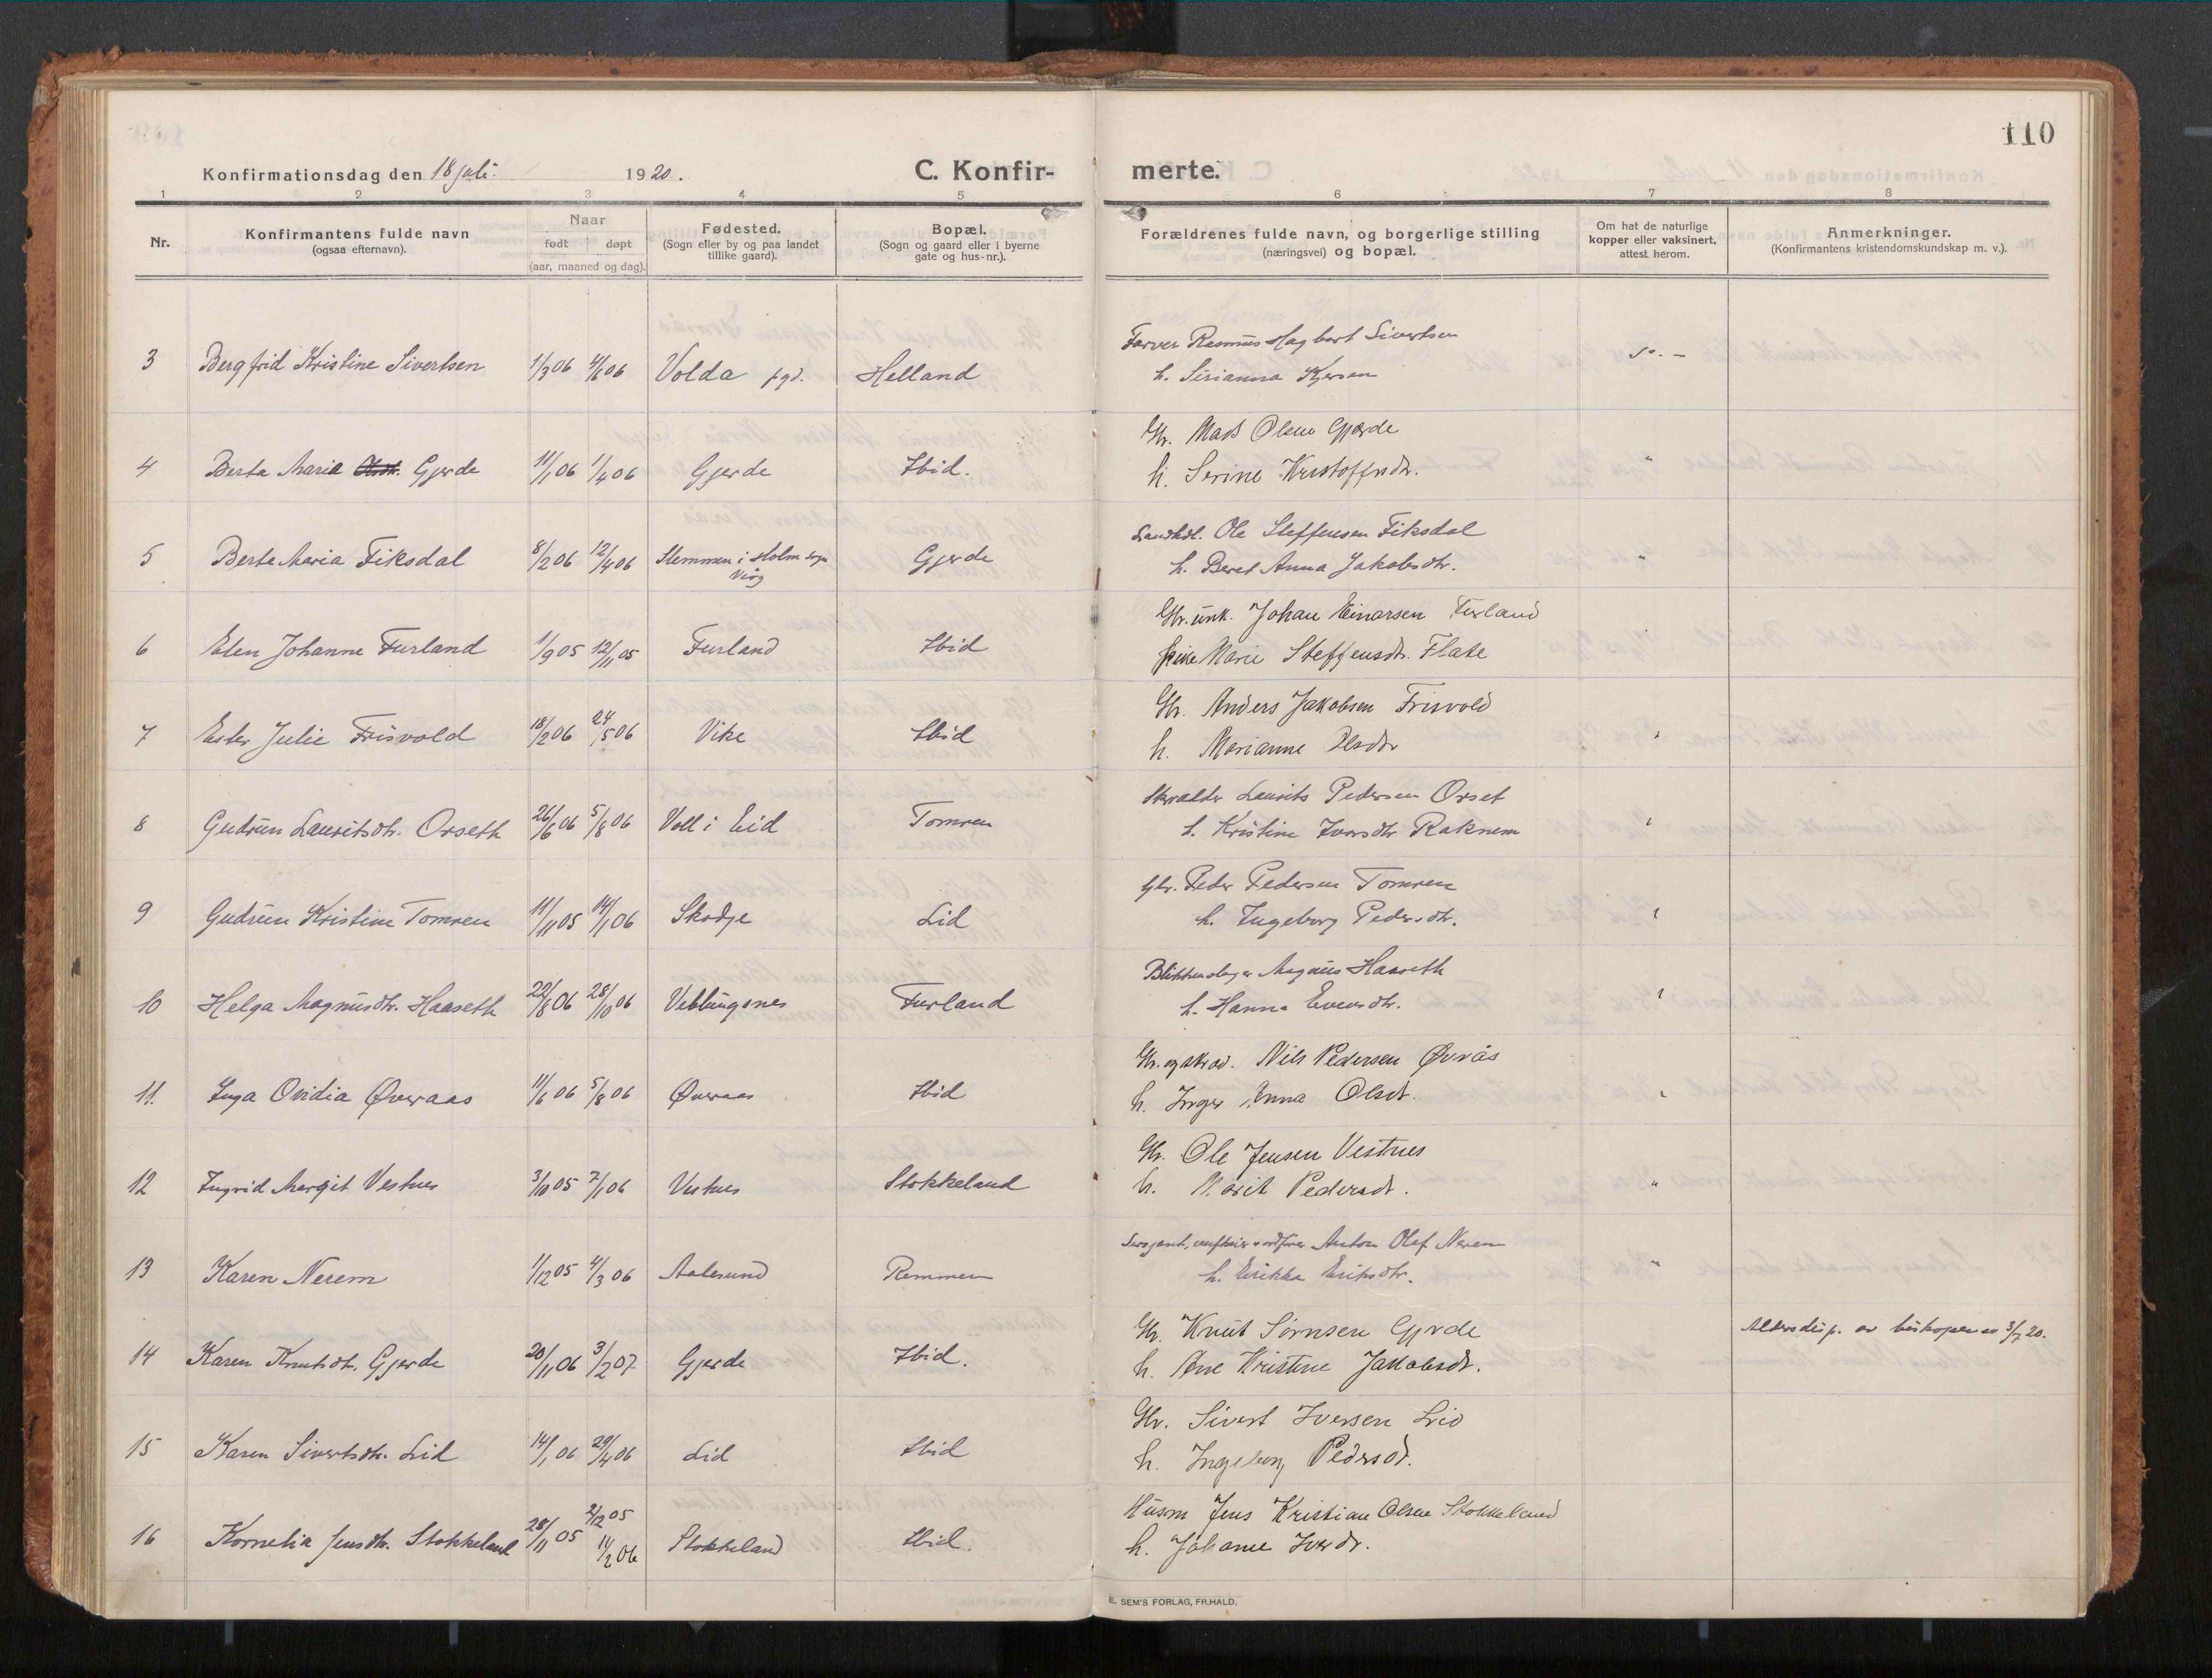 110
Konfirmationsdag den 18 juli 1920.
C. Konfir-
merte.
1 2 3 4 5 6 7 8
Nr.
Konfirmantens fulde navn
(ogsaa efternavn).
Naar
født døpt
(aar, maaned og dag).
Fødested.
(Sogn eller by og paa landet
tillike gaard).
Bopæl.
(Sogn og gaard eller i byerne
gate og hus-nr.).
Forældrenes fulde navn, og borgerlige stilling
(næringsvei) og bopæl.
Om hat de naturlige
kopper eller vaksinert,
attest herom.
Anmerkninger.
(Konfirmantens kristendomskundskap m. v.).
Farver Rasmus Hagbart Sivertsen
3 Bergfrid Kristine Sivertsen 1/3 06 4/6 06 Volda pgd. Helland
h. Sirianna
Gbr. Mads Olsen Gjerde
4 Berte Marie Gjerde 11/1 06 1/4 06 Gjerde Ibid. "
h. Serine Kristoffersdtr.
Landhdl. Ole Steffensen Fiksdal
5 Berte Maria Fiksdal 8/2 06 12/4 06 Stemmen i Holm sogn Gjerde "
h. Beret Anna Jakobsdtr.
Gbr. unk. Johan Einarsen Furland
6 Elen Johanne Furland 1/9 05 12/11 05 Furland Ibid
pike Marie Steffensdtr. Flate
Gbr. Anders Jakobsen Frisvold
7 Ester Julie Frisvold 18/2 06 24/5 06 Vike Ibid
h. Marianne Olsdtr
Skrædder Laurits Pedersen Orset
8 Gudrun Lauritsdtr. Orseth 26/6 06 5/8 06 Voll i Eid Tomren
h. Kristine Iversdtr Raknem
Gbr. Peder Pedersen Tomren
9 Gudrun Kristine Tomren 11/11 05 14/1 06 Skodje Lid
h. Ingeborg Pedersdtr.
Blikkenslager Magnus Haaseth
10 Helga Magnusdtr. Haaseth 22/8 06 28/10 06 Veblungsnes Furland
h. Hanna Evensdtr.
Gbr. og skræd. Nils Pedersen Øvrås
11. Inga Ovidia Øveraas 11/6 06 5/8 06 Øveraas Ibid
h. Inger Anna Olsdt.
Gbr. Ole Jensen Vestnes
12 Ingrid Margit Vestnes 3/10 05 7/1 06 Vestnes Stokkeland "
h. Marit Pedersdt.
Sersjant, Anton Olaf Nerem
13 Karen Nerem 1/12 05 4/3 06 Aalesund Remmem "
h. Erikka Eriksdtr.
Gbr. Knut Sørnsen Gjerde
Aldersdisp. av biskopen av 3/7 20.
14 Karen Knutsdtr. Gjerde 20/11 06 3/2 07. Gjerde Ibid.
h. Ane Kristine Jakobsdt.
Gbr. Sivert Iversen Lid
15 Karen Sivertsdtr. Lid 14/1 06 29/4 06 Lid Ibid
h. Ingeborg Pedersdt.
Husm Jens Kristian Olsen Stokkeland
2/12 05
16 Kornelia Jensdtr. Stokkeland 28/11 05 11/2 06 Stokkeland Ibid.
h. Johanne Iversdt.
E. SEM'S FORLAG, FR.HALD.